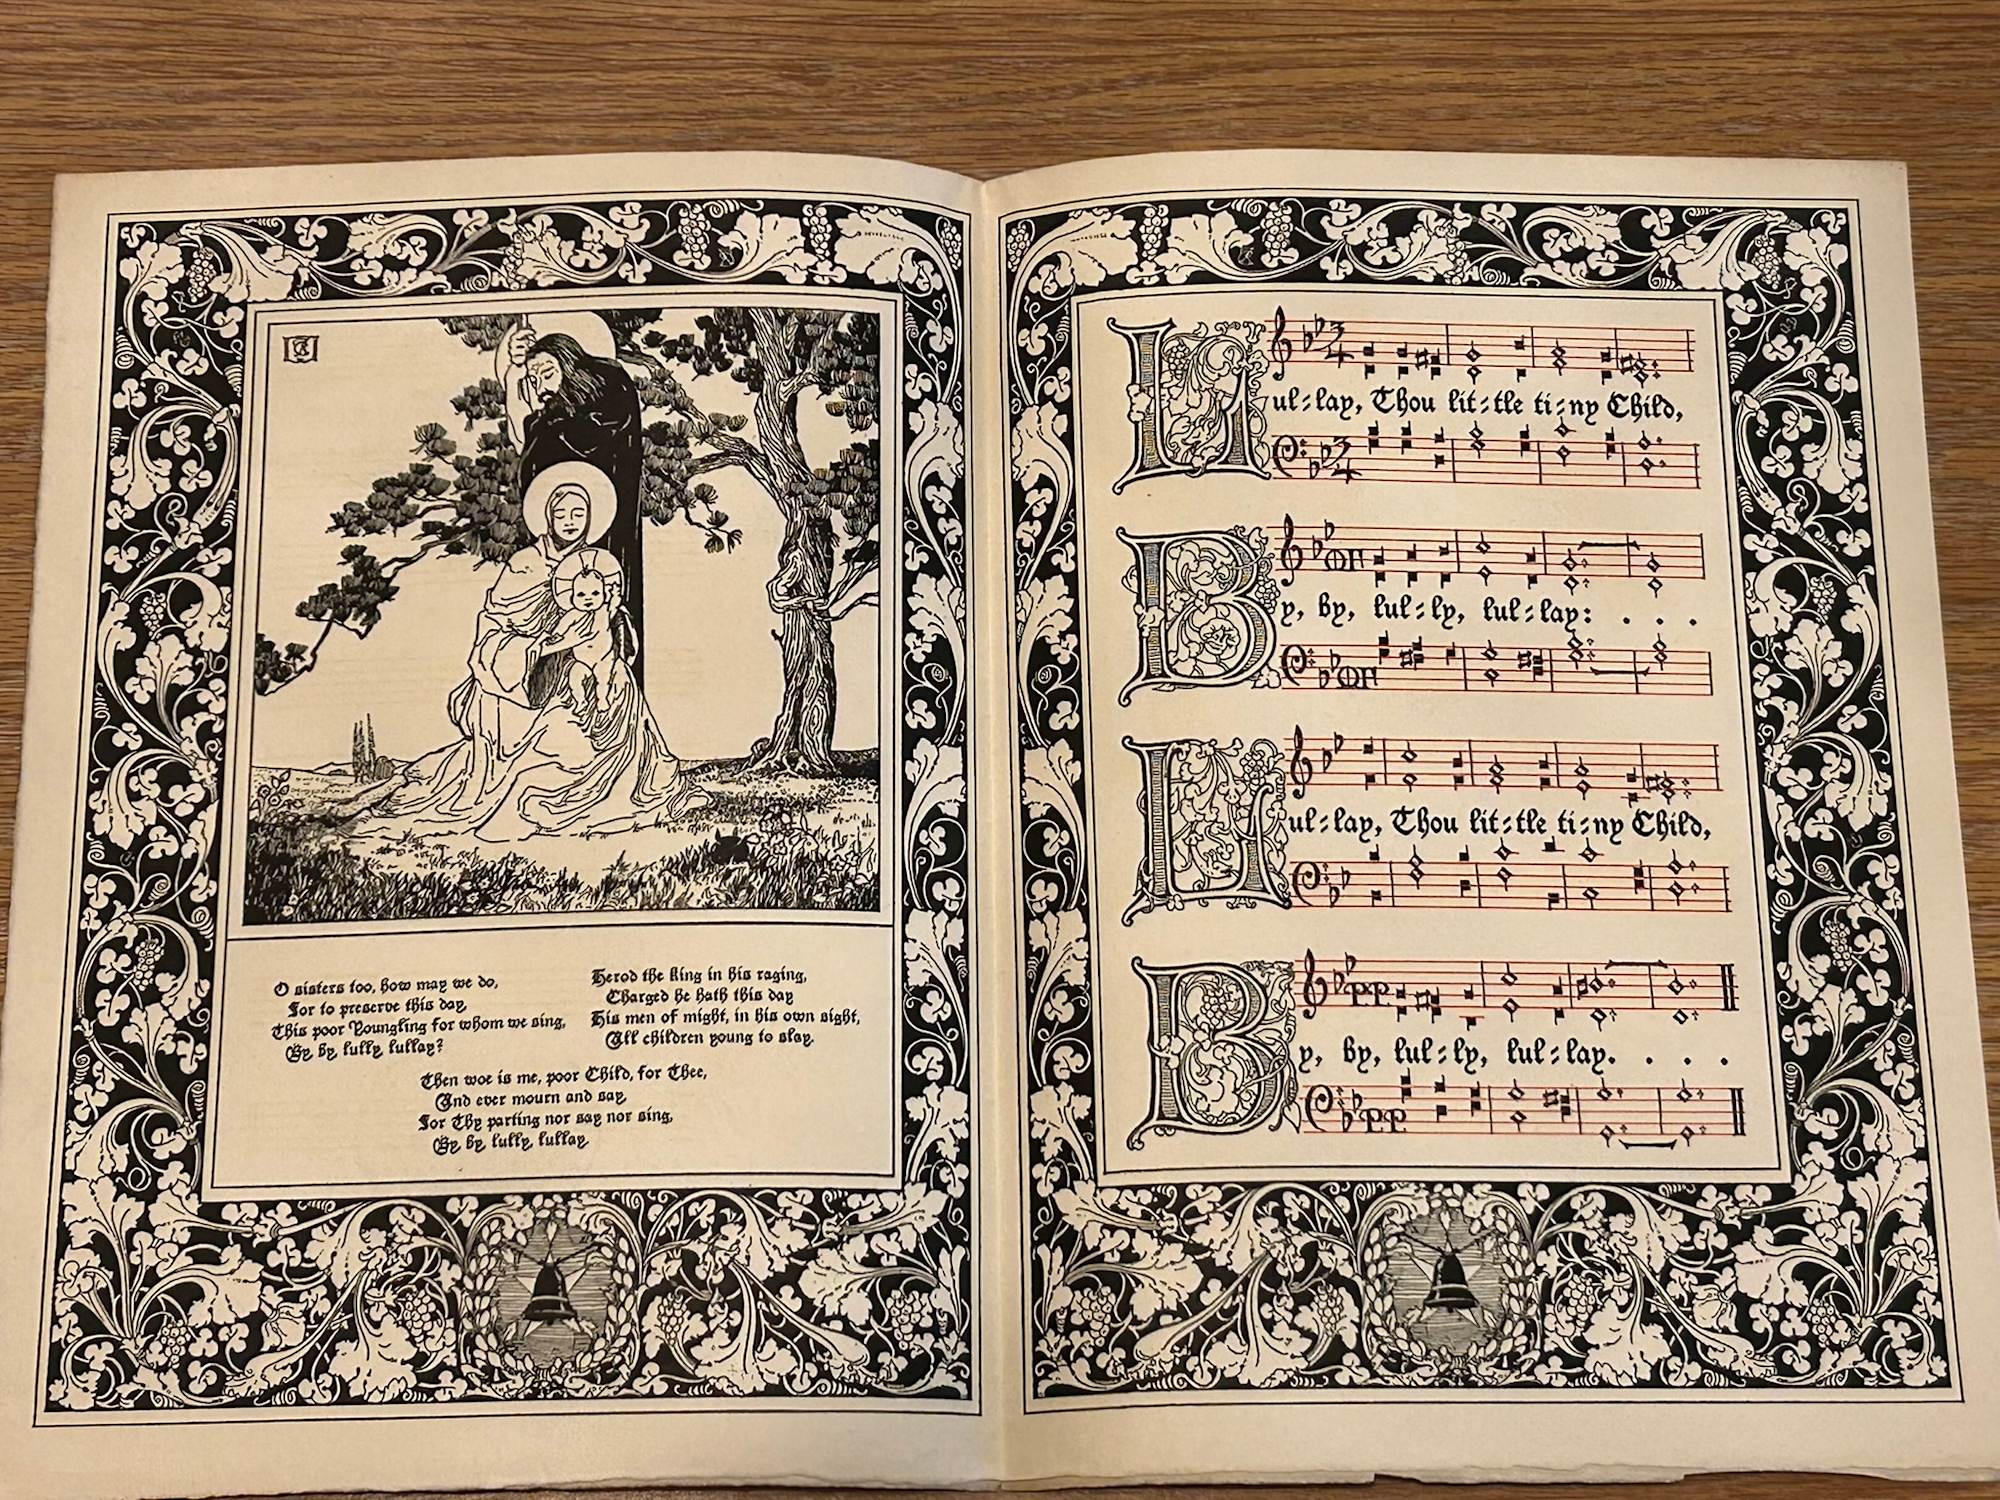 O sisters too, how may we do,
For to preserve this day,
This poor Youngling for whom we sing,
By by, lully, lullay?
Herod the King in his raging,
Charged he hath this day
His men of might, in his own sight,
All children young to slay.
Then woe is me, poor Child, for Thee,
And ever mourn and say,
For Thy parting nor say nor sing,
By by, lully, lullay.
Lul-lay, Thou lit-tle ti-ny Child,
By, by, lul-ly, lul-lay: . . .
Lul-lay, Thou lit-tle ti-ny Child,
pp
By, by, lul-ly, lul-lay. . . . .
pp